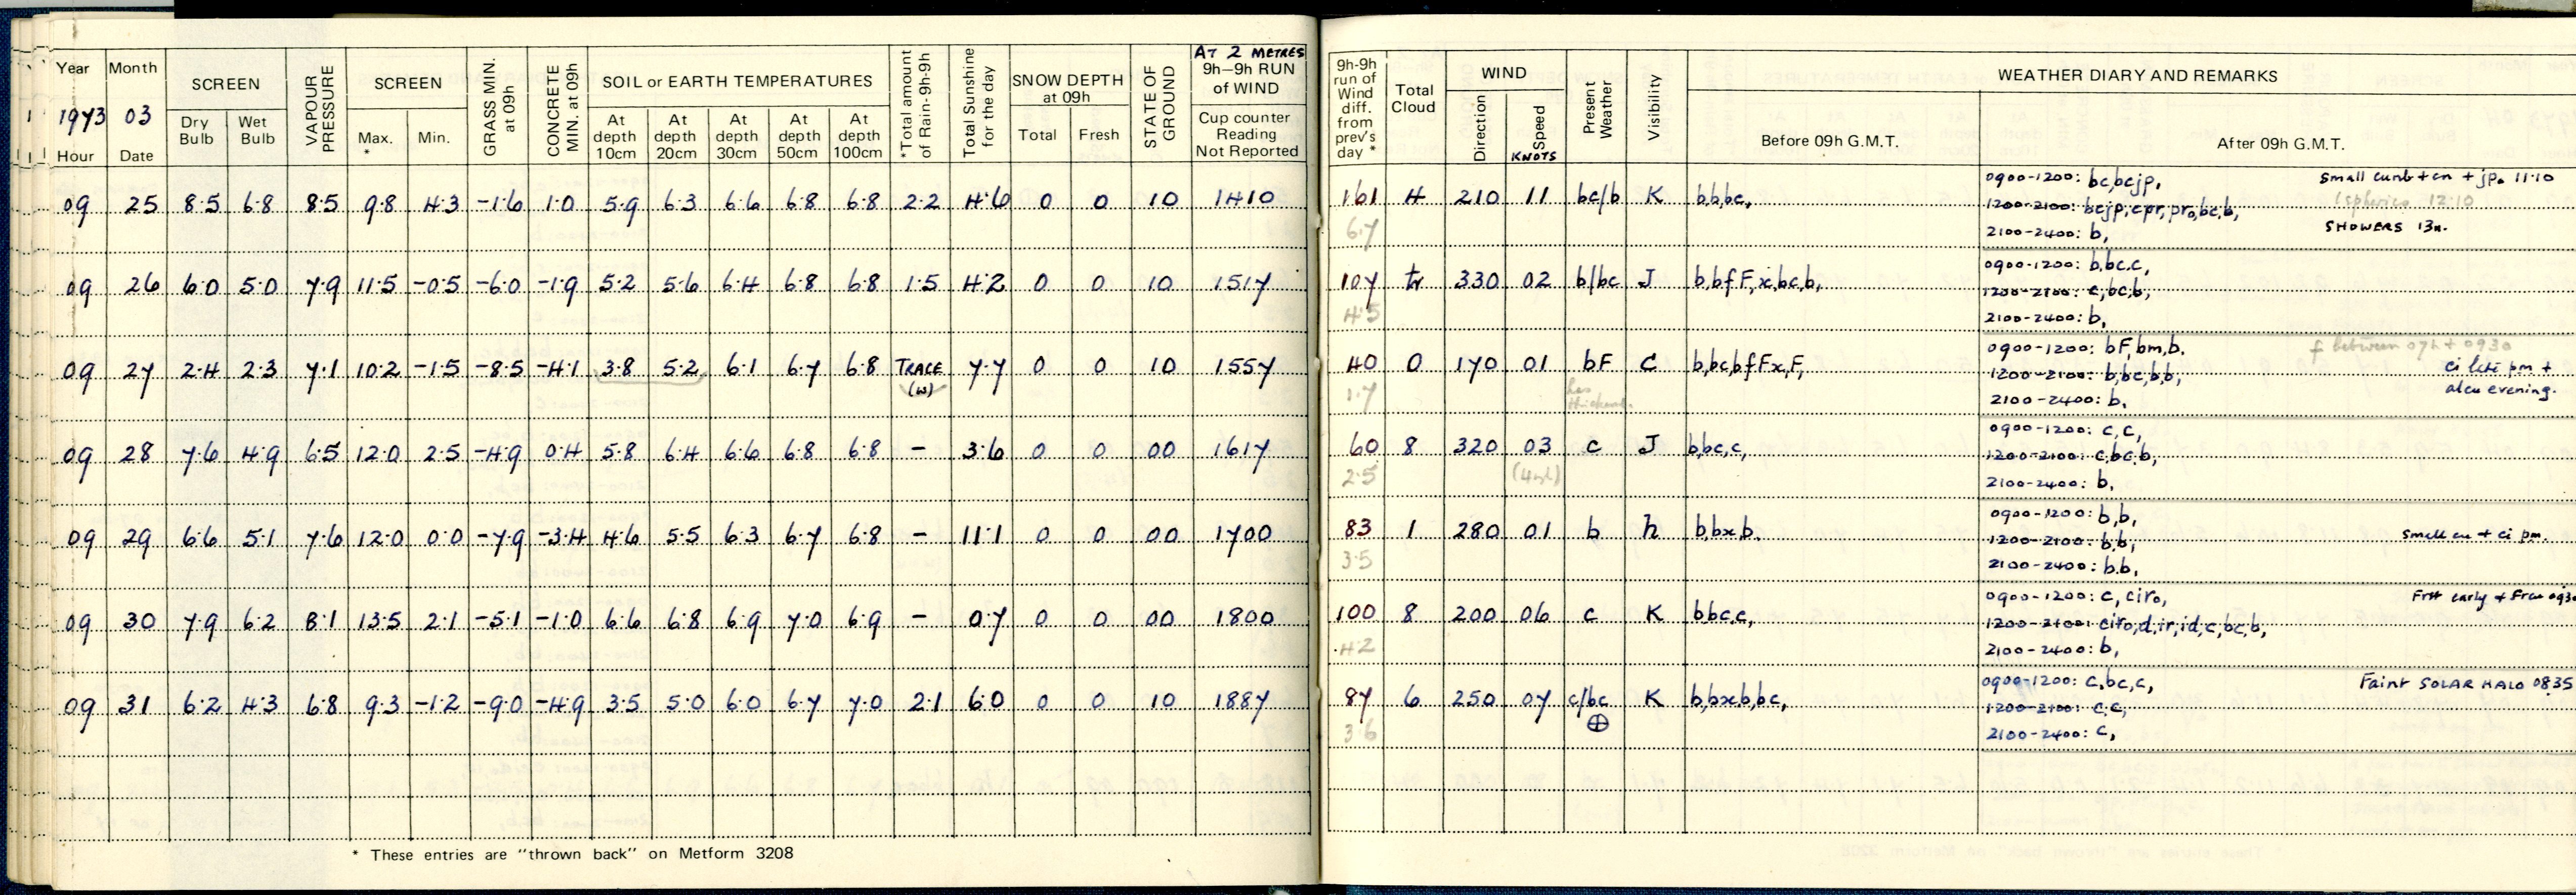 Year Month SCREEN VAPOUR PRESSURE SCREEN GRASS MIN. at 09h CONCRETE MIN. at 09h SOIL or EARTH TEMPERATURES *Total amount of Rain-9h-9h Total Sunshine for the day SNOW DEPTH at 09h STATE OF GROUND AT 2 METRES 9h–9h RUN of WIND
1973 03 Dry Bulb Wet Bulb Max. * Min. At depth 10cm At depth 20cm At depth 30cm At depth 50cm At depth 100cm Total Fresh Cup counter Reading Not Reported
Hour Date
09 25 8.5 6.8 8.5 9.8 4.3 -1.6 1.0 5.9 6.3 6.6 6.8 6.8 2.2 4.6 0 0 10 1410
09 26 6.0 5.0 7.9 11.5 -0.5 -6.0 -1.9 5.2 5.6 6.4 6.8 6.8 1.5 4.2 0 0 10 1517
09 27 2.4 2.3 7.1 10.2 -1.5 -8.5 -4.1 3.8 5.2 6.1 6.7 6.8 TRACE (w) 7.7 0 0 10 1557
09 28 7.6 4.9 6.5 12.0 2.5 -4.9 0.4 5.8 6.4 6.6 6.8 6.8 - 3.6 0 0 00 1617
09 29 6.6 5.1 7.6 12.0 0.0 -7.9 -3.4 4.6 5.5 6.3 6.7 6.8 - 11.1 0 0 00 1700
09 30 7.9 6.2 8.1 13.5 2.1 -5.1 -1.0 6.6 6.8 6.9 7.0 6.9 - 0.7 0 0 00 1800
09 31 6.2 4.3 6.8 9.3 -1.2 -9.0 -4.9 3.5 5.0 6.0 6.7 7.0 2.1 6.0 0 0 10 1887
* These entries are "thrown back" on Metform 3208
9h-9h run of Wind diff. from prev's day * Total Cloud WIND Present Weather Visibility WEATHER DIARY AND REMARKS
Direction Speed KNOTS Before 09h G.M.T. After 09h G.M.T.
0900-1200: bc,bcjp, Small cunb + cn + jp. 11.10
161 4 210 11 bc/b K b,b,bc,
1200-2100: bcjp,cpr,pro,bc,b, 12.10
6.7 2100-2400: b, SHOWERS
0900-1200: b,bc,c,
107 tr 330 02 b/bc J b,bfF,x,bc,b,
1200-2100: c,bc,b,
4.5 2100-2400: b,
0900-1200: bF,bm,b. f between 07h + 0930
40 0 170 01 bF C b,bc,bfFx,F,
1200-2100: b,bc,b,b, ci late pm +
1.7 2100-2400: b. evening.
0900-1200: c,c,
60 8 320 03 c J b,bc,c,
1200-2100: c,bc,b,
2.5 2100-2400: b.
0900-1200: b,b,
83 1 280 01 b h b,bx,b.
1200-2100: b,b, Small cu + ci pm.
3.5 2100-2400: b,b,
0900-1200: c, ciro, early +
100 8 200 06 c K b,bc,c,
1200-2100: ciro,d,ir,id,c,bc,b,
4.2 2100-2400: b,
0900-1200: c,bc,c, Faint SOLAR HALO 0835
87 6 250 07 c/bc K b,bx,b,bc,
1200-2100: c,c,
3.6 ⊕ 2100-2400: c,